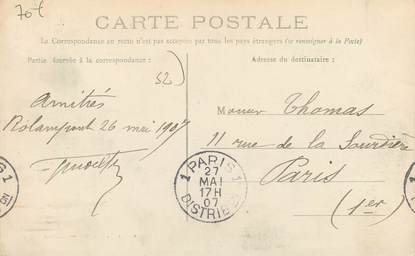 70-E
CARTE POSTALE
La Correspondance au recto n'est pas acceptée par tous les pays étrangers (se renseigner à la Poste)
Partie réservée à la correspondance :
Adresse du destinataire :
52
Amitiés
Rolampont 26 mai 1907
Monsieur Thomas
11 rue de la Sourdière
Paris
(1er)
1 PARIS 1
27
MAI
17H
07
DISTRIB